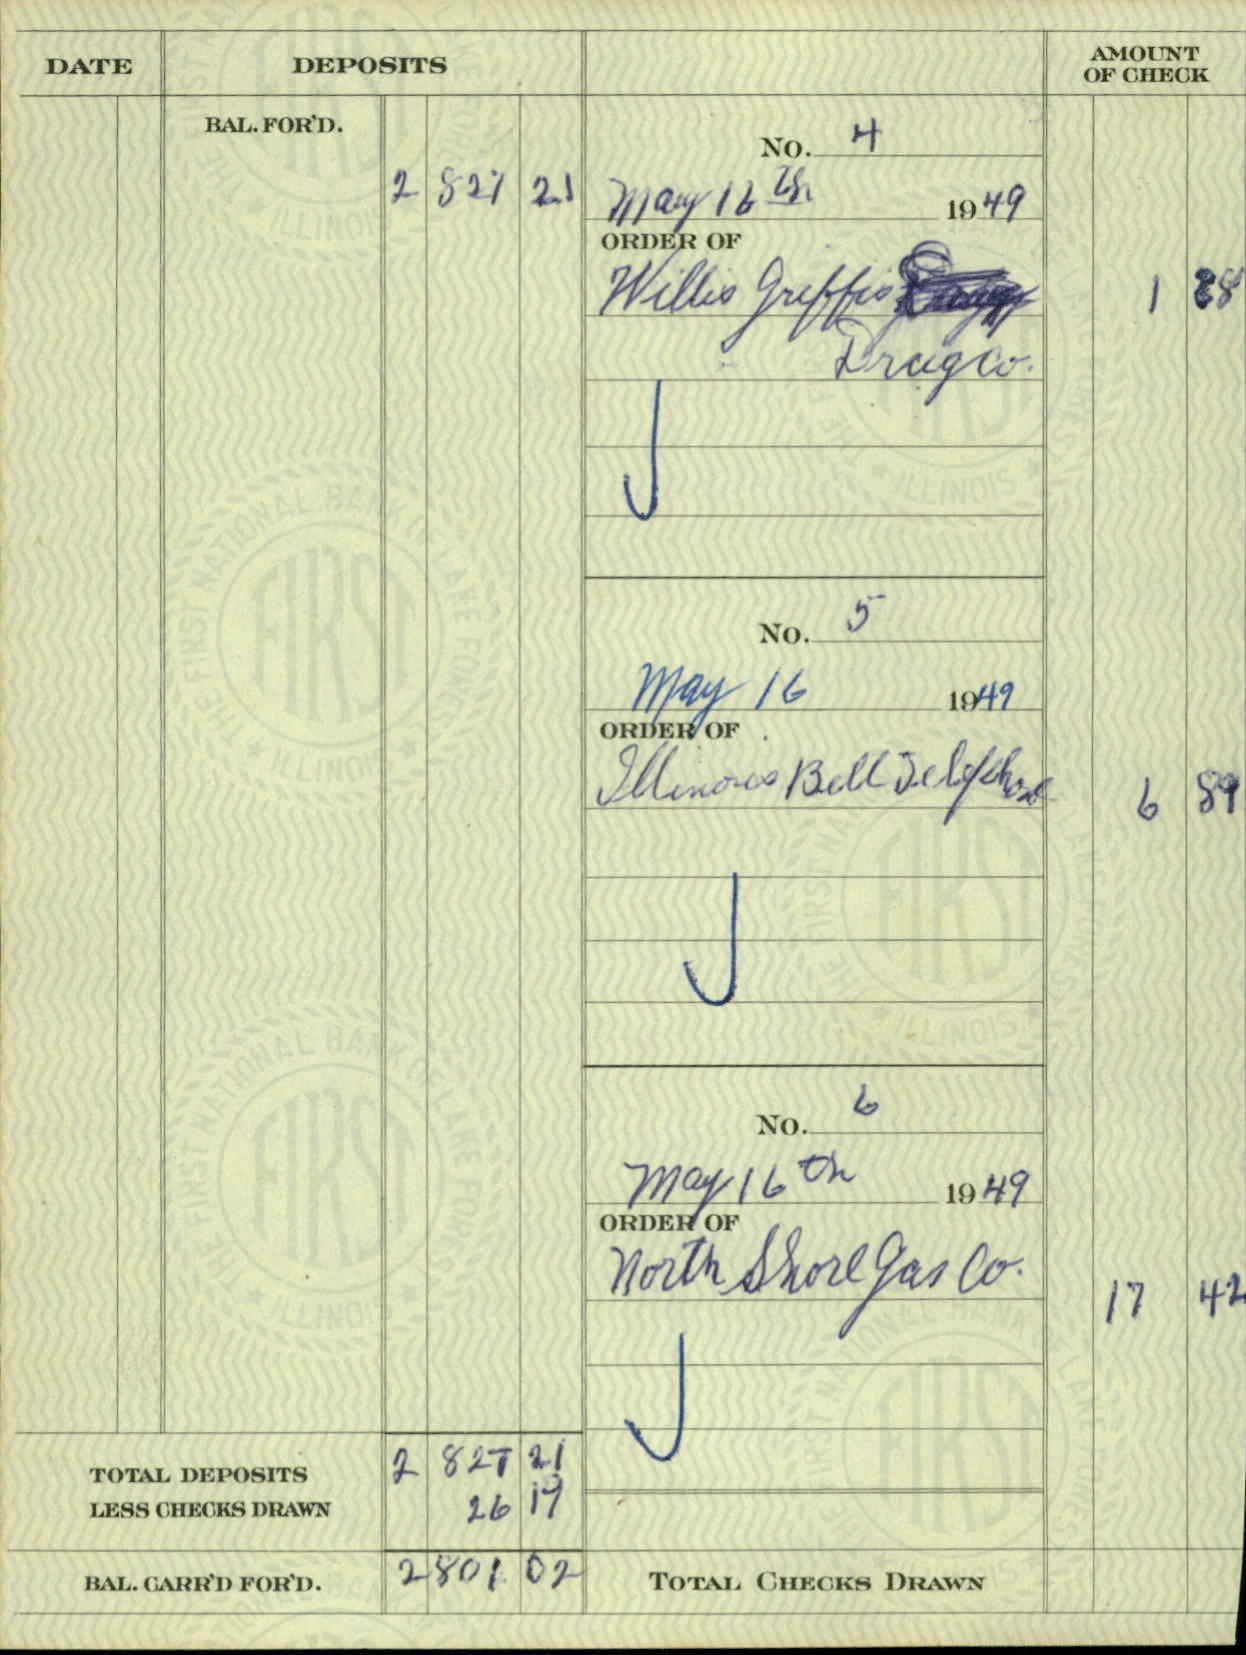 DATE DEPOSITS AMOUNT OF CHECK
BAL. FOR'D.
2 827 21
No. 4
May 16th 1949
ORDER OF
Willis Griffis
Drug Co.
1 88
No. 5
May 16 1949
ORDER OF
Illinois Bell Telephone
6 89
No. 6
May 16th 1949
ORDER OF
North Shore Gas Co.
17 42
TOTAL DEPOSITS 2 827 21
LESS CHECKS DRAWN 26 19
BAL. CARR'D FOR'D. 2 801 02
TOTAL CHECKS DRAWN
THE FIRST NATIONAL BANK OF LAKE FOREST
FIRST
ILLINOIS